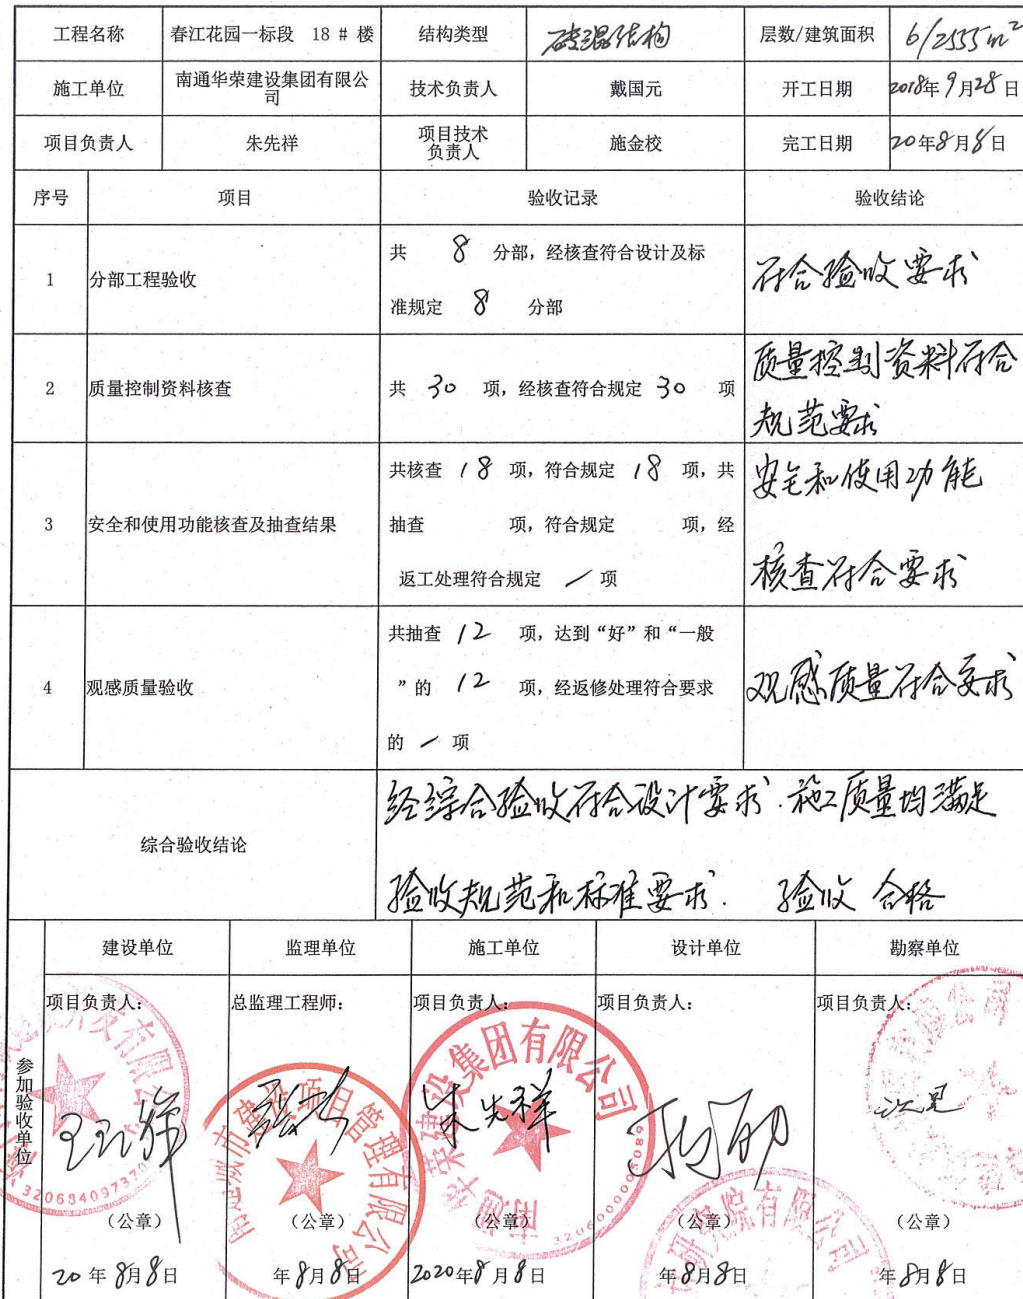 工程名称 春江花园一标段 18 # 楼 结构类型 砖混结构 层数/建筑面积 6/2555m²
施工单位 南通华荣建设集团有限公司 技术负责人 戴国元 开工日期 2018年9月28日
项目负责人 朱先祥 项目技术负责人 施金校 完工日期 20年8月8日
序号 项目 验收记录 验收结论
1 分部工程验收
共 8 分部，经核查符合设计及标
准规定 8 分部
符合验收要求
2 质量控制资料核查
共 30 项，经核查符合规定 30 项
质量控制资料符合
规范要求
3 安全和使用功能核查及抽查结果
共核查 18 项，符合规定 18 项，共
抽查 项，符合规定 项，经
返工处理符合规定 / 项
安全和使用功能
核查符合要求
4 观感质量验收
共抽查 12 项，达到“好”和“一般
”的 12 项，经返修处理符合要求
的 / 项
观感质量符合要求
综合验收结论
经综合验收符合设计要求.施工质量均满足
验收规范和标准要求. 验收 合格
参加验收单位
建设单位 监理单位 施工单位 设计单位 勘察单位
项目负责人： 总监理工程师： 项目负责人： 项目负责人： 项目负责人：
朱先祥
建设集团有限公司
市建设项目管理有限公司
（公章） （公章） （公章） （公章） （公章）
20 年 8月8日 年 8月8日 2020年8月8日 年8月8日 年8月8日